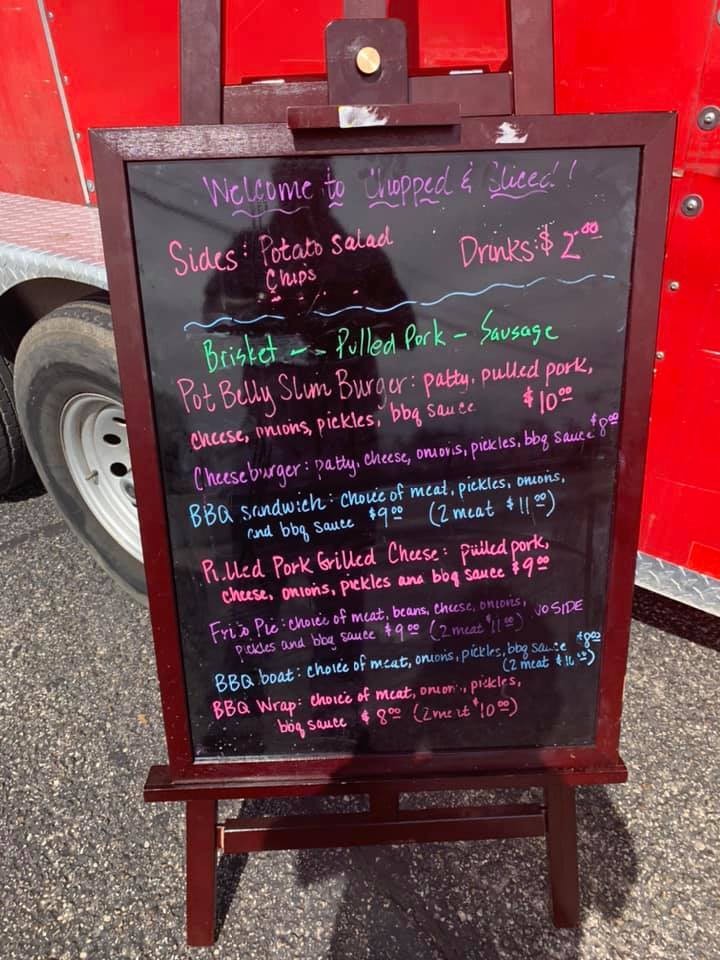 Welcome to Chopped & Sliced!
Sides: Potato Salad
Chips
Drinks: $2.00
Brisket -- Pulled Pork - Sausage
Pot Belly Slim Burger: patty, pulled pork,
cheese, onions, pickles, bbq sauce $10.00
Cheeseburger: patty, cheese, onions, pickles, bbq sauce $8.00
BBQ Sandwich: choice of meat, pickles, onions,
and bbq sauce $9.00 (2 meat $11.00)
Pulled Pork Grilled Cheese: pulled pork,
cheese, onions, pickles and bbq sauce $9.00
Frito Pie: choice of meat, beans, cheese, onions, NO SIDE
pickles and bbq sauce $9.00 (2 meat $11.00)
BBQ boat: choice of meat, onions, pickles, bbq sauce $8.00
(2 meat $10.00)
BBQ Wrap: choice of meat, onions, pickles,
bbq sauce $8.00 (2 meat $10.00)